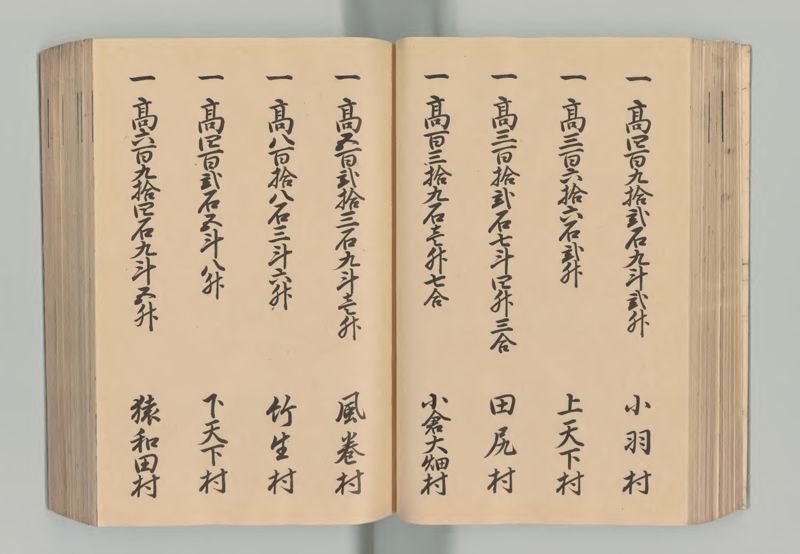 一 高四百九拾弐石九斗弐升 小羽村
一 高三百六拾六石弐升 上天下村
一 高三百拾弐石七斗四升三合 田尻村
一 高百三拾九石壱升七合 小倉大畑村
一 高五百弐拾三石九斗壱升 風巻村
一 高八百拾八石三斗六升 竹生村
一 高四百弐石五斗八升 下天下村
一 高六百九拾四石九斗五升 猿和田村